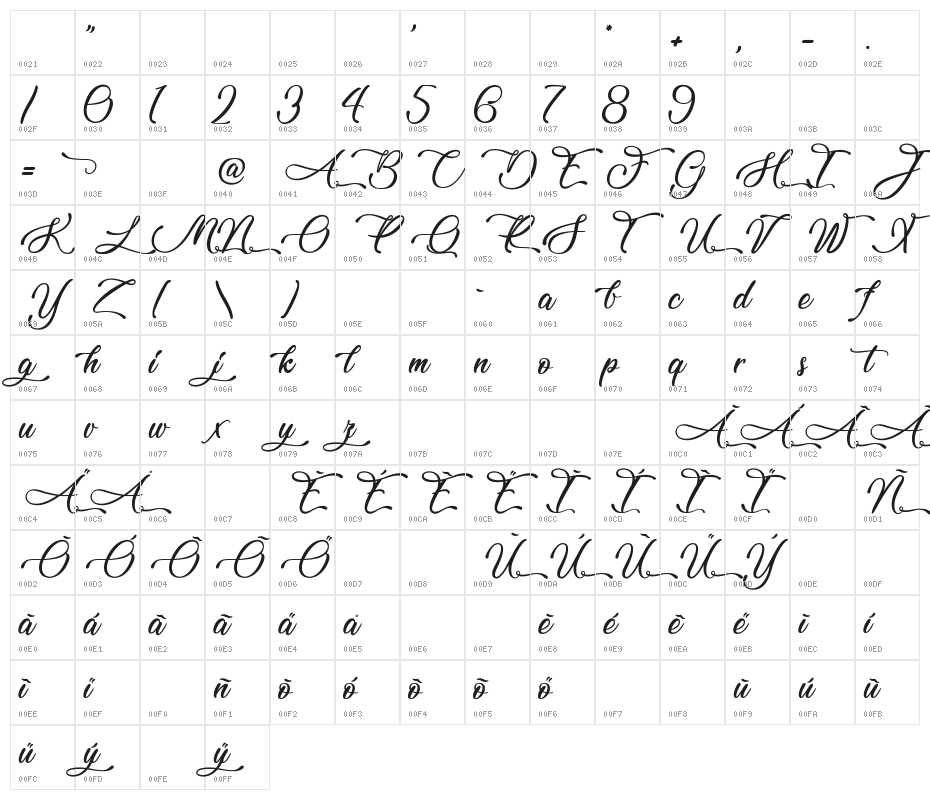 " ' * + , - .
0021 0022 0023 0024 0025 0026 0027 0028 0029 002A 002B 002C 002D 002E
/ 0 1 2 3 4 5 6 7 8 9
002F 0030 0031 0032 0033 0034 0035 0036 0037 0038 0039 003A 003B 003C
= @ A B C D E F G H I J
003D 003E 003F 0040 0041 0042 0043 0044 0045 0046 0047 0048 0049 004A
K L M N O P Q R S T U V W X
004B 004C 004D 004E 004F 0050 0051 0052 0053 0054 0055 0056 0057 0058
Y Z [ \ ] ` a b c d e f
0059 005A 005B 005C 005D 005E 005F 0060 0061 0062 0063 0064 0065 0066
g h i j k l m n o p q r s t
0067 0068 0069 006A 006B 006C 006D 006E 006F 0070 0071 0072 0073 0074
u v w x y z À Á Â Ã
0075 0076 0077 0078 0079 007A 007B 007C 007D 007E 00C0 00C1 00C2 00C3
Ä Å È É Ê Ë Ì Í Î Ï Ñ
00C4 00C5 00C6 00C7 00C8 00C9 00CA 00CB 00CC 00CD 00CE 00CF 00D0 00D1
Ò Ó Ô Õ Ö Ù Ú Û Ü Ý
00D2 00D3 00D4 00D5 00D6 00D7 00D8 00D9 00DA 00DB 00DC 00DD 00DE 00DF
à á â ã ä å è é ê ë ì í
00E0 00E1 00E2 00E3 00E4 00E5 00E6 00E7 00E8 00E9 00EA 00EB 00EC 00ED
î ï ñ ò ó ô õ ö ù ú û
00EE 00EF 00F0 00F1 00F2 00F3 00F4 00F5 00F6 00F7 00F8 00F9 00FA 00FB
ü ý ÿ
00FC 00FD 00FE 00FF